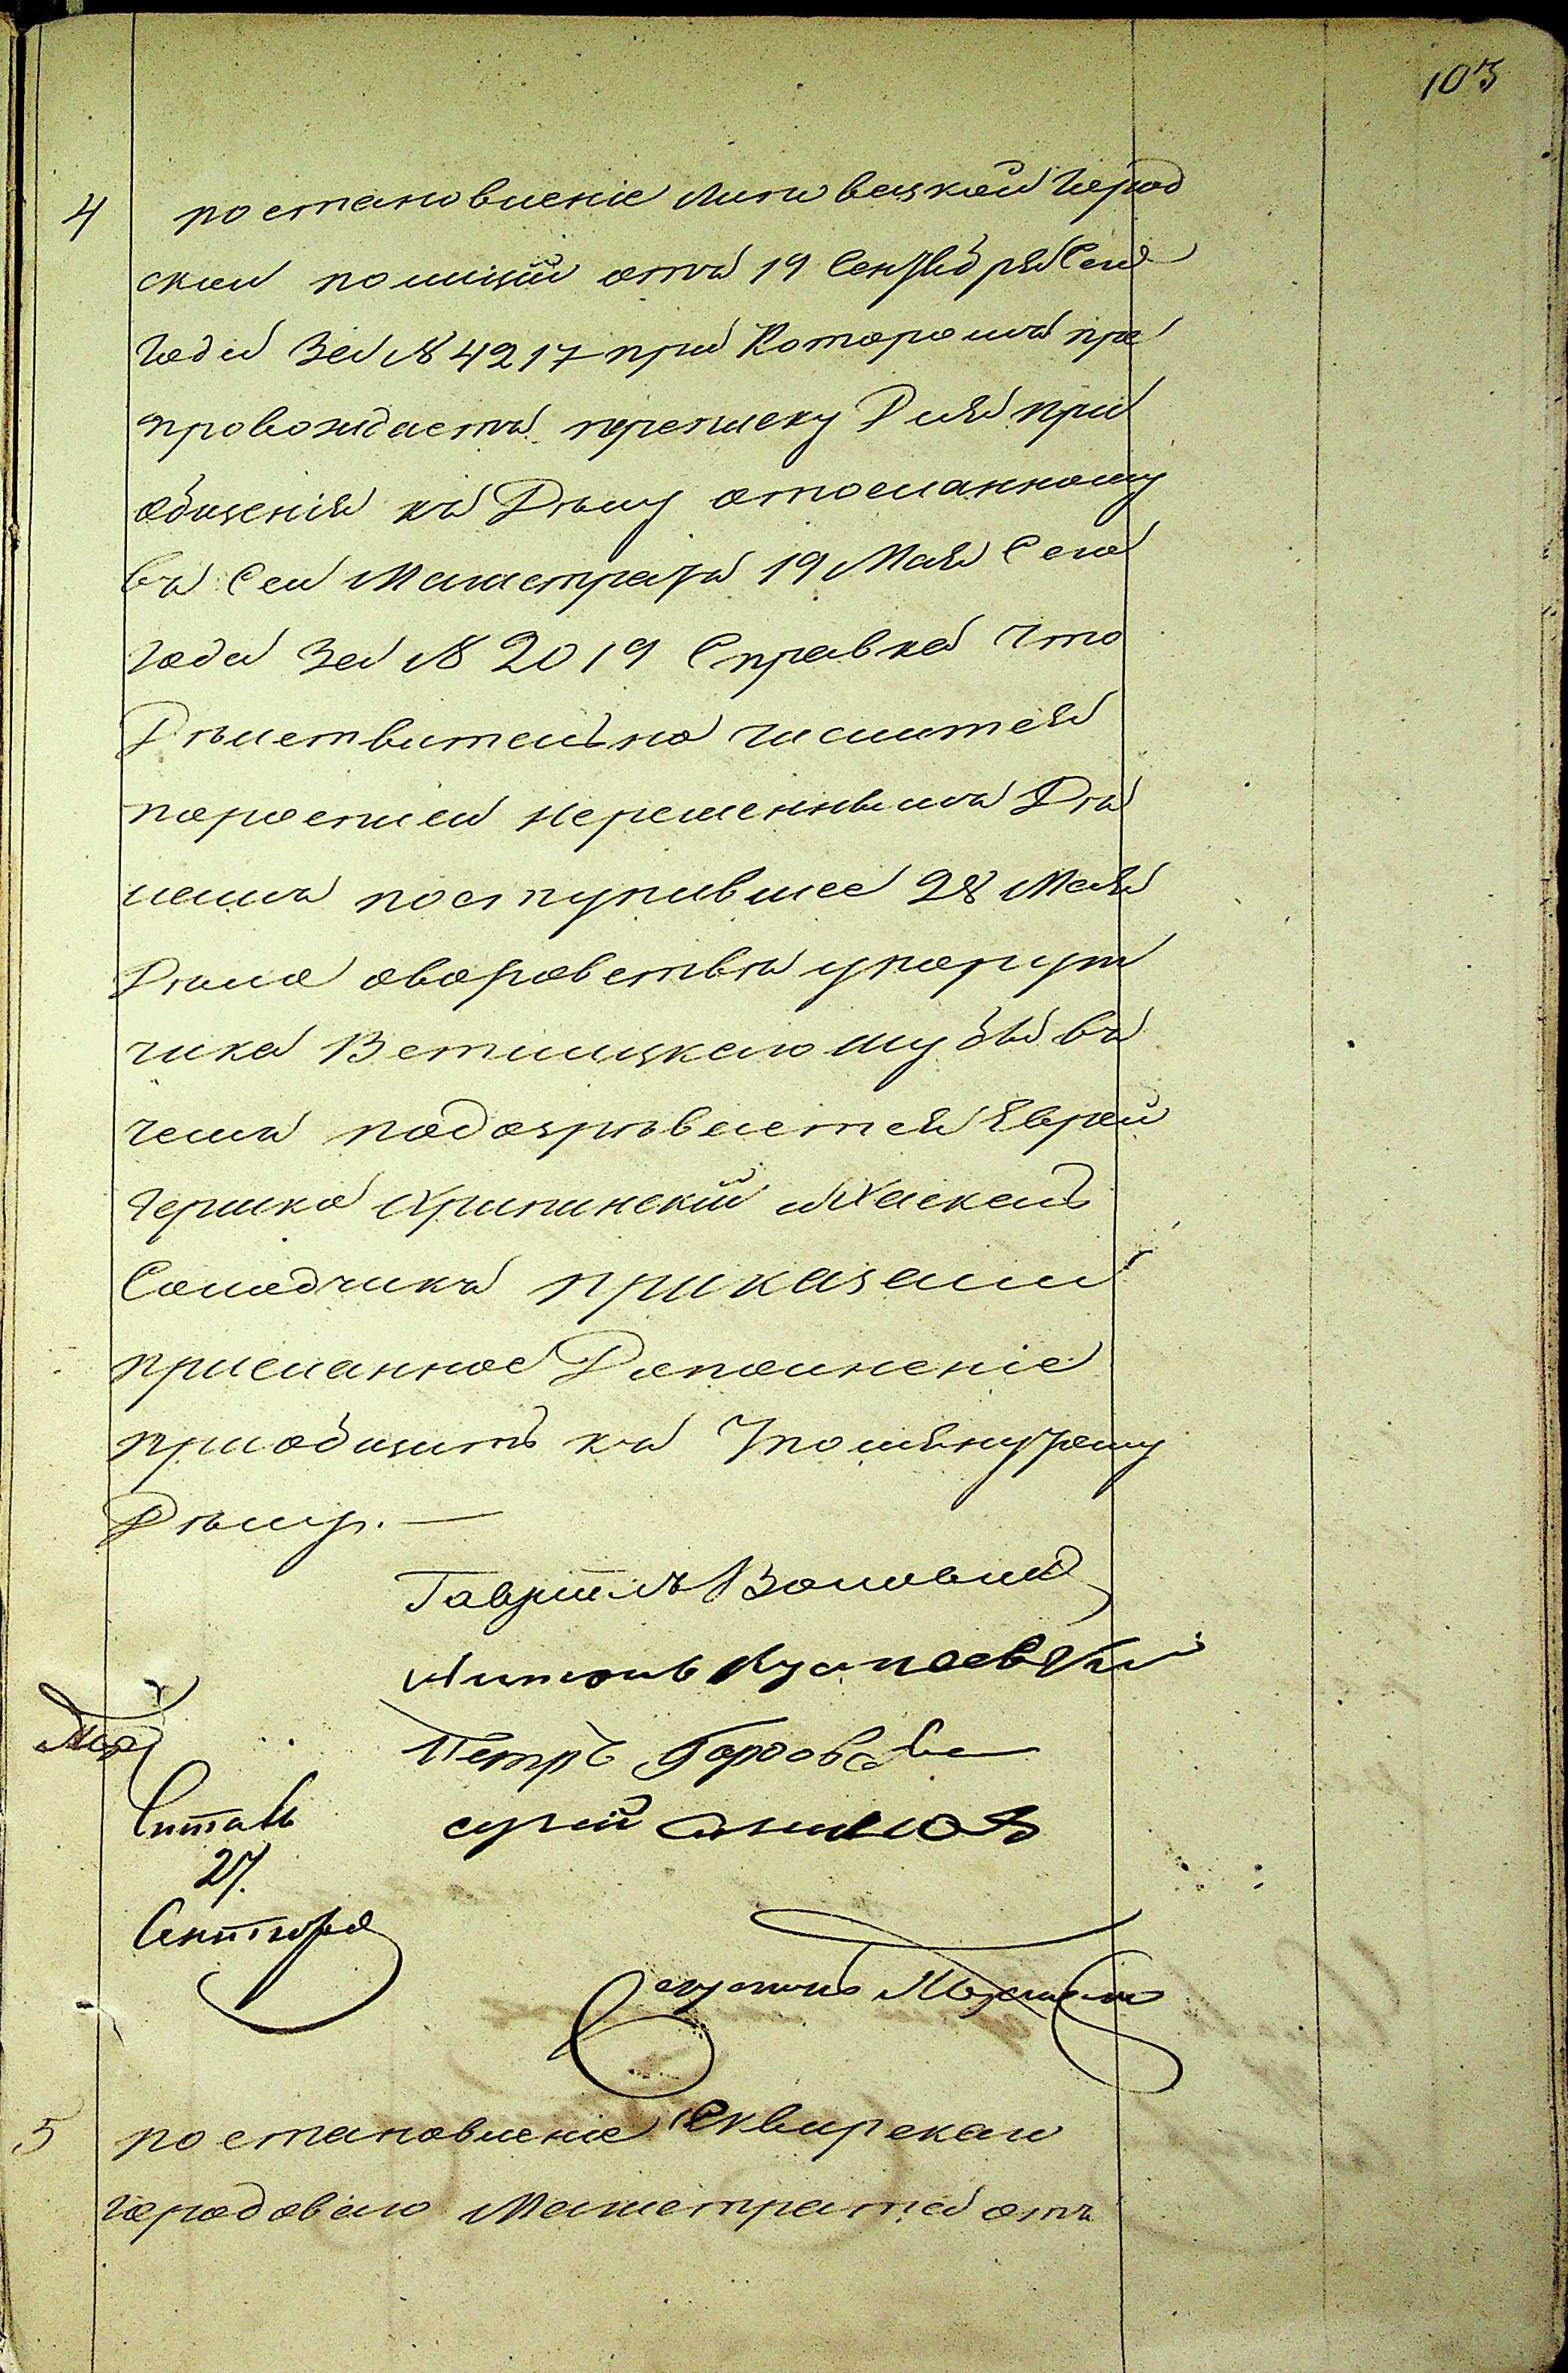 103
4 постановленіе Липовецкой Город
ской полиціи отъ 19 Сентября Сего
Года За № 4217 при Которомъ пре
провождаетъ переписку Для при
общенія къ Дѣлу отосланному
въ Сей Магистратъ 19 Мая Сего
Года За № 2019 Справка Что
Дѣйствительно числится
по нерешеннымъ Дѣ
ламъ поступившее 28 Мая
Дѣло оворовствѣ упорут
чика шубы въ
чемъ подозрѣвается Еврей
Гершко Крипинскій иХаскель
Солодчикъ приказали
присланное Дополненіе
пріобщить къ Упомянутому
Дѣлу. —
Гавріилъ
Антонъ
Петръ
Читалъ
27.
Сентября
5 постановленіе Сквирскаго
городоваго Магистрата отъ